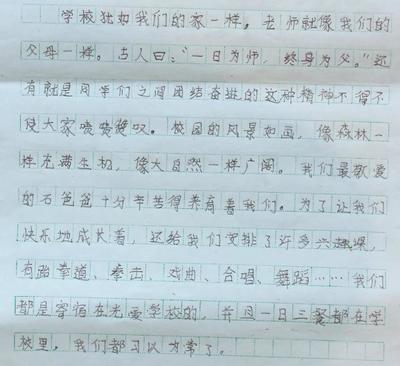 学校犹如我们的家一样。老师就像我们的
父母一样。古人曰:“一日为师,终身为父。”还
有就是同学们之间团结奋进的这种精神不得不
使大家啧啧赞叹。校园的风景如画,像森林一
样充满生机,像大自然一样广阔。我们最敬爱
的石爸爸十分辛苦得养育着我们。为了让我们
快乐地成长着,还给我们安排了许多兴趣课,
有跆拳道、拳击、戏曲、合唱、舞蹈……我们
都是寄宿在光爱学校的,并且一日三餐都在学
校里。我们都习以为常了。